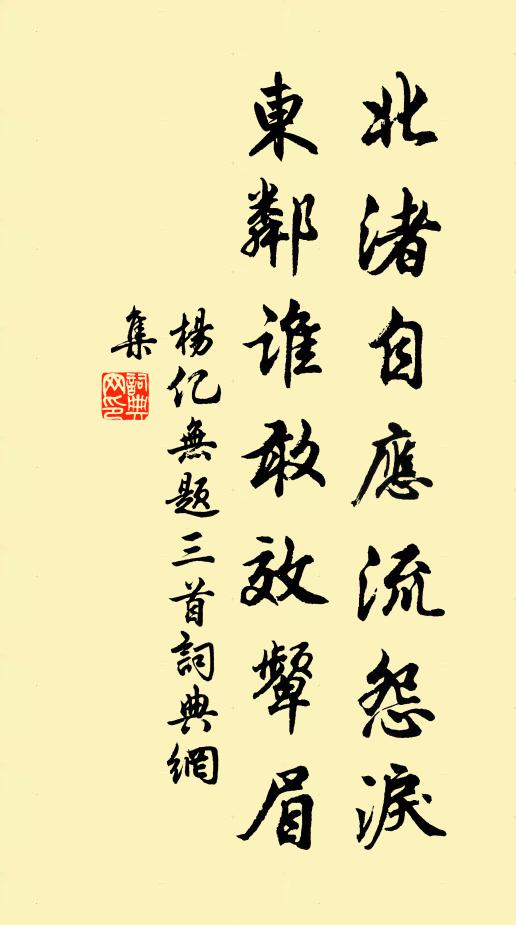 北渚自應流怨淚
東鄰誰敢效顰眉
楊億無題三首詞典網
集
詞典网印